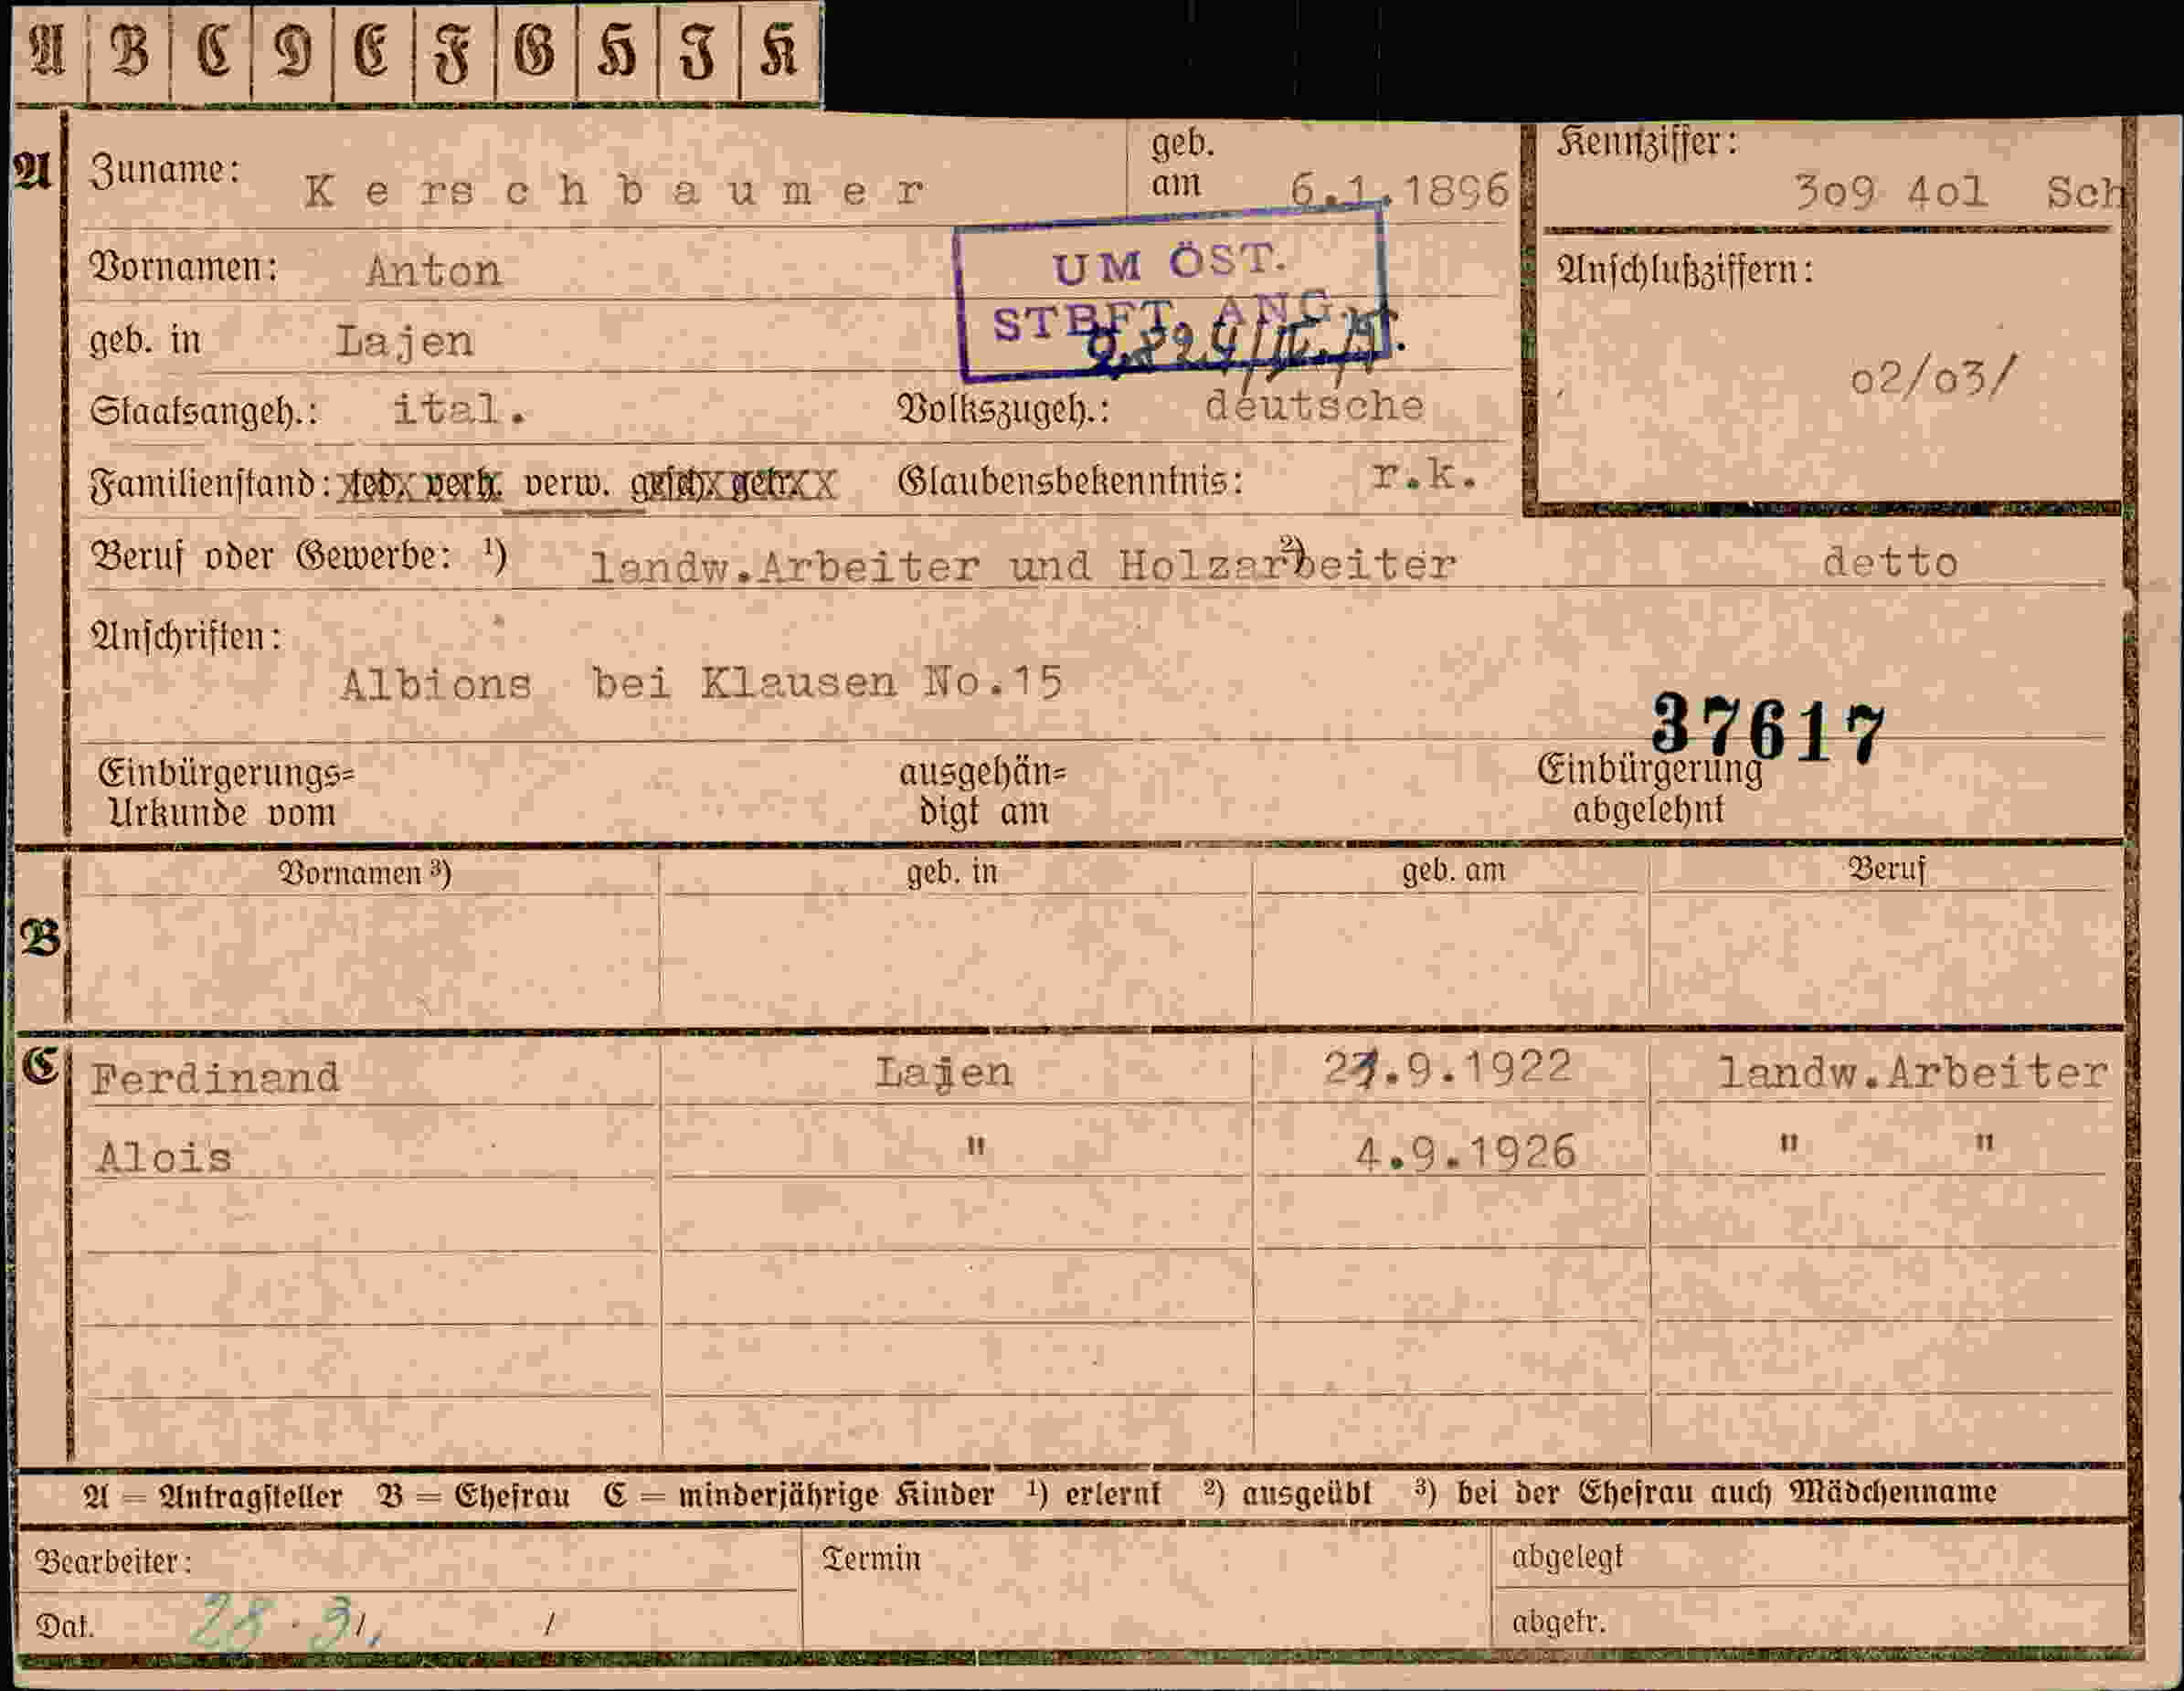 A B C D E F G H I K
A Zuname: Kerschbaumer geb. am 6.1.1896 Kennziffer: 3o9 4o1 Sch
Vornamen: Anton
UM ÖST.
STBFT. ANG.
Anschlußziffern:
geb. in Lajen
o2/o3/
Staatsangeh.: ital. Volkszugeh.: deutsche
Familienstand: led. verh. verw. gesch. getr. Glaubensbekenntnis: r.k.
Beruf oder Gewerbe: ¹) landw.Arbeiter und Holzarbeiter ²) detto
Anschriften:
Albions bei Klausen No.15
37617
Einbürgerungs= ausgehän= Einbürgerung
Urkunde vom digt am abgelehnt
Vornamen ³) geb. in geb. am Beruf
B
C Ferdinand Lajen .9.1922 landw.Arbeiter
Alois " 4.9.1926 " "
A = Antragsteller B = Ehefrau C = minderjährige Kinder ¹) erlernt ²) ausgeübt ³) bei der Ehefrau auch Mädchenname
Bearbeiter: Termin abgelegt
Dat. 28.3. / abgetr.